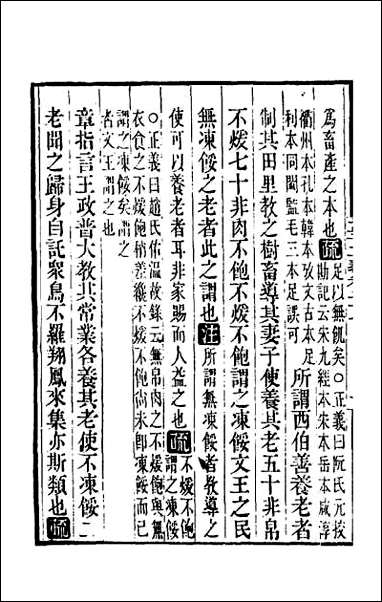 爲畜產之本也疏足以無飢矣○正義曰阮氏元挍
勘記云宋九經本宋本岳本咸淳
衢州本孔本韓本攷文古本足
利本同閩監毛三本足誤可
所謂西伯善養老者
制其田里教之樹畜導其妻子使養其老五十非帛
不煖七十非肉不飽不煖不飽謂之凍餒文王之民
無凍餒之老者此之謂也注所謂無凍餒者教導之
使可以養老者耳非家賜而人益之也疏不煖不飽
謂之凍餒
○正義曰趙氏佑溫故錄云無帛肉之不煖飽與無
衣食之不煖飽稍差纔不煖不飽尚未卽凍餒而已
謂之凍餒矣謂之
者文王謂之也
章指言王政普大教其常業各養其老使不凍餒二
老聞之歸身自託眾鳥不羅翔鳳來集亦斯類也疏